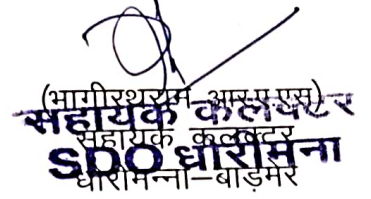 (भागीरथराम-आर.ए.एस)
सहायक कलक्टर
सहायक कलक्टर
SDO धोरीमना
धोरीमन्ना-बाड़मेर